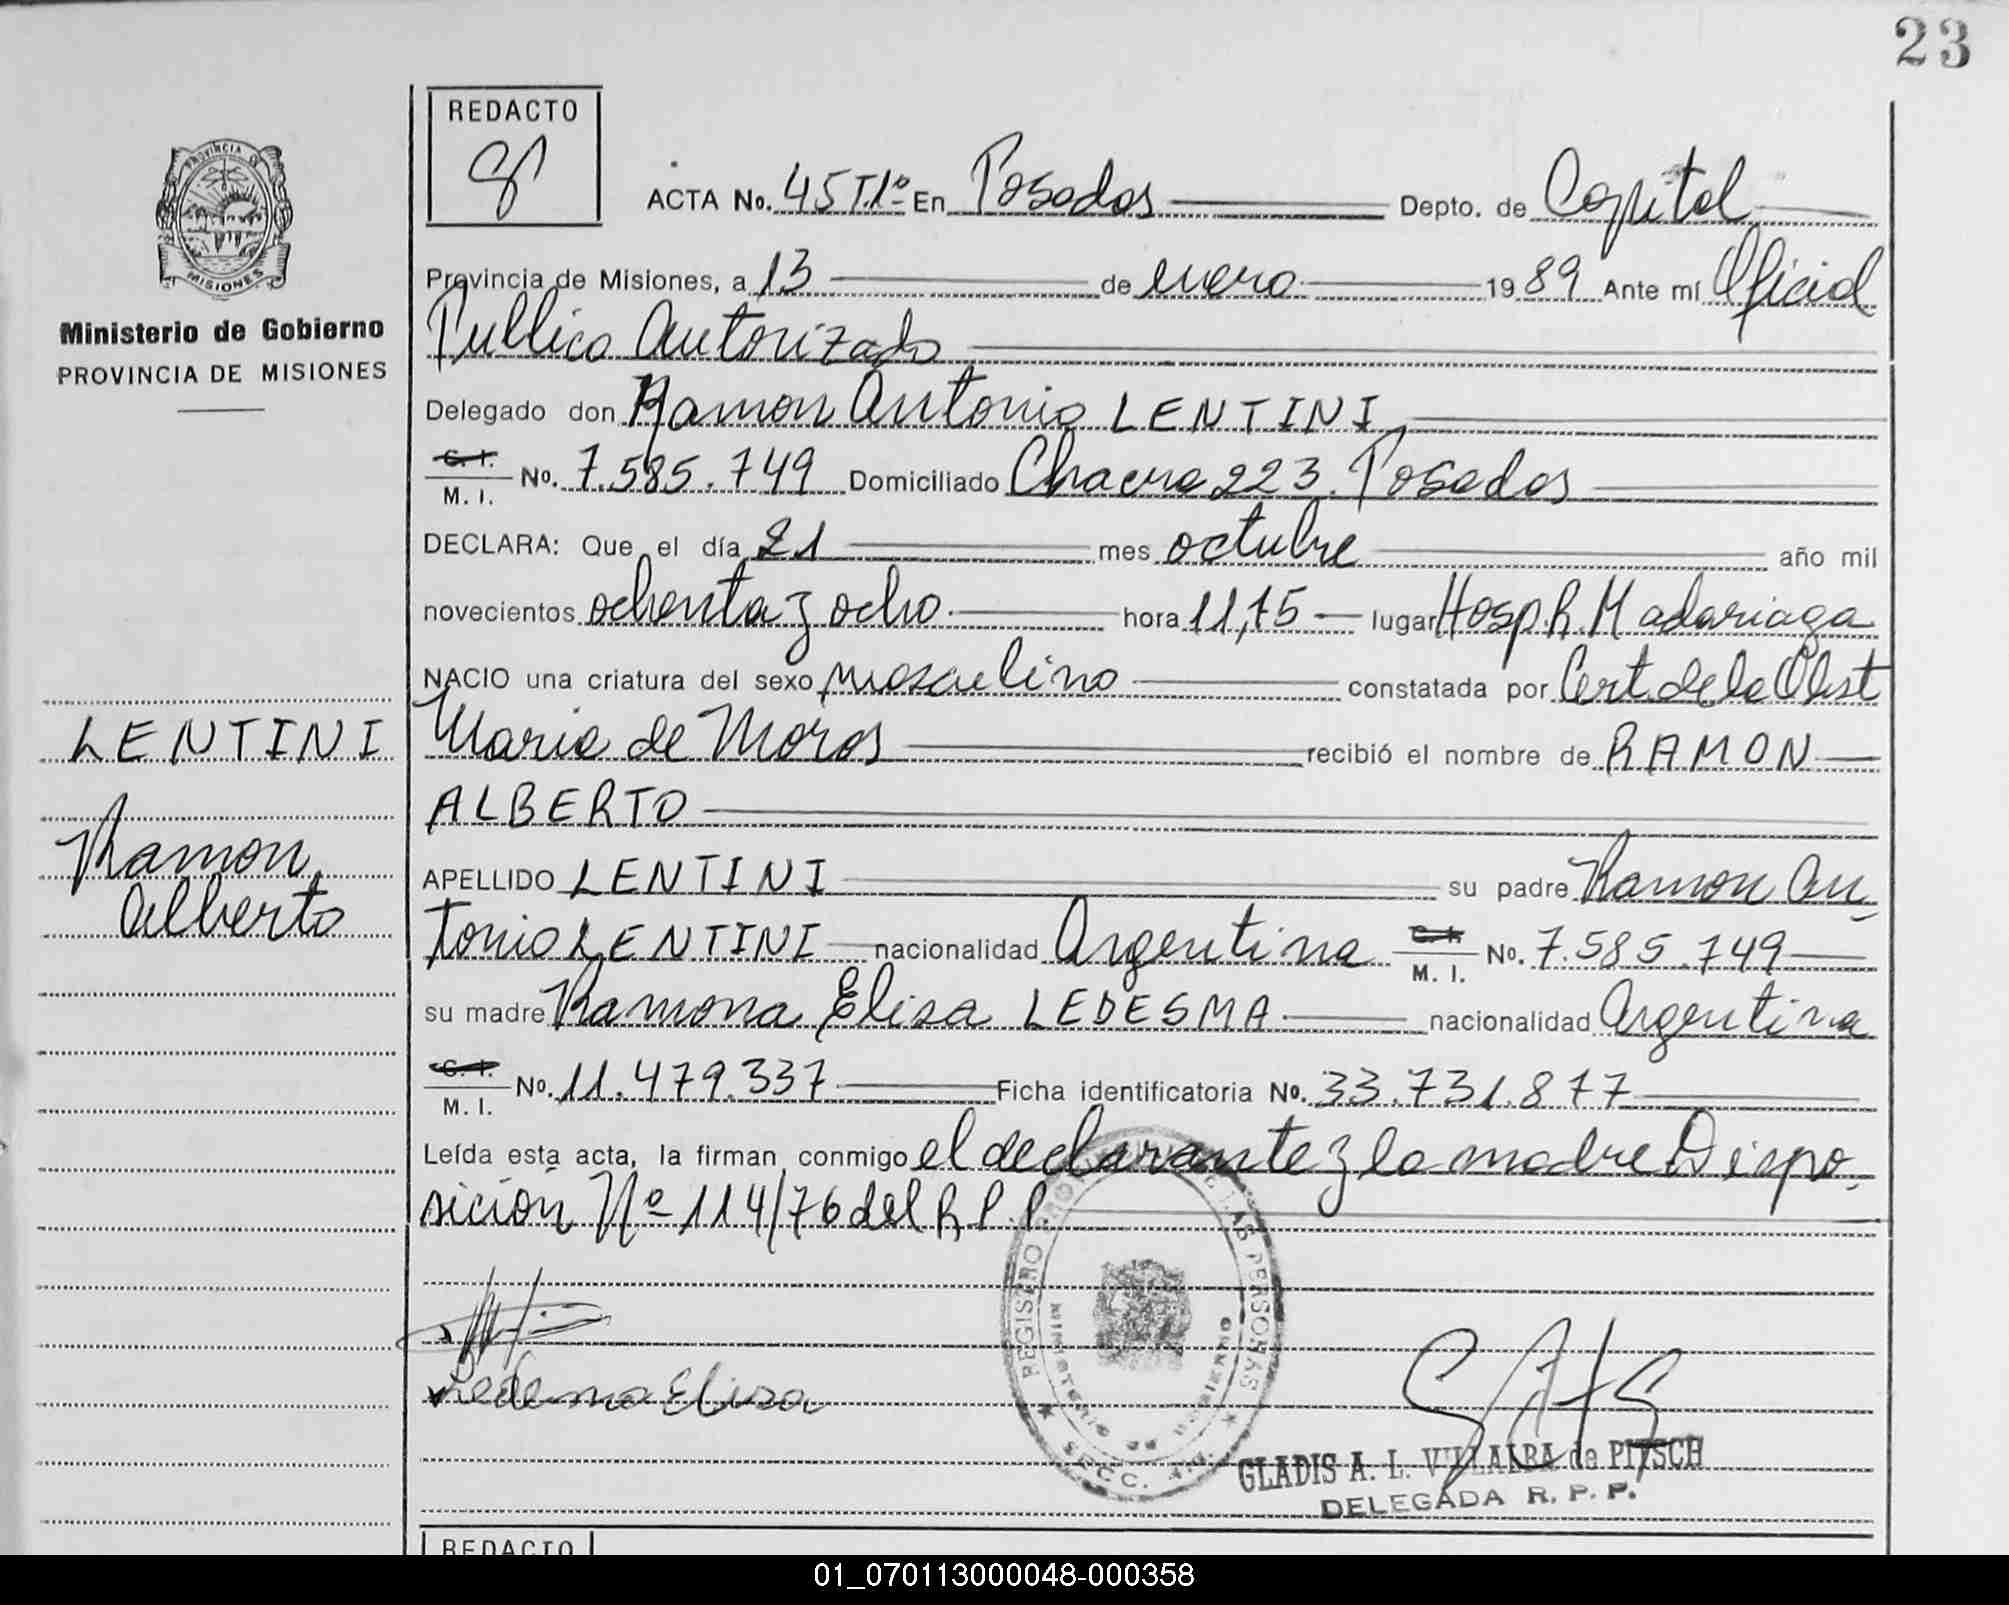 23
REDACTO
PROVINCIA DE
MISIONES
Ministerio de Gobierno
PROVINCIA DE MISIONES
ACTA No. 45 T.1º En Posadas Depto. de Capital
Provincia de Misiones, a 13 de enero 1989 Ante mí Oficial
Publico Autorizado
Delegado don Ramon Antonio LENTINI
C. I.
M. I. No. 7.585.749 Domiciliado Chacra 223. Posadas
DECLARA: Que el día 21 mes octubre año mil
novecientos ochenta y ocho hora 11,15 lugar Hosp. R. Madariaga
NACIO una criatura del sexo masculino constatada por Cert de la Obst
Maria de Moros recibió el nombre de RAMON
ALBERTO
LENTINI
Ramon
Alberto
APELLIDO LENTINI su padre Ramon An-
tonio LENTINI nacionalidad Argentina M. I. No. 7.585.749
su madre Ramona Elisa LEDESMA nacionalidad Argentina
C. I.
M. I. No. 11.479.337 Ficha identificatoria No. 33.731.877
Leída esta acta, la firman conmigo el declarante y la madre Dispo-
sición Nº 114/76 del R.P.P
REGISTRO PROVINCIAL DE LAS PERSONAS
MINISTERIO DE GOBIERNO
SECC.
Ledesma Elisa
GLADIS A. L. VILLALBA de PITSCH
DELEGADA R. P. P.
REDACTO
01_070113000048-000358